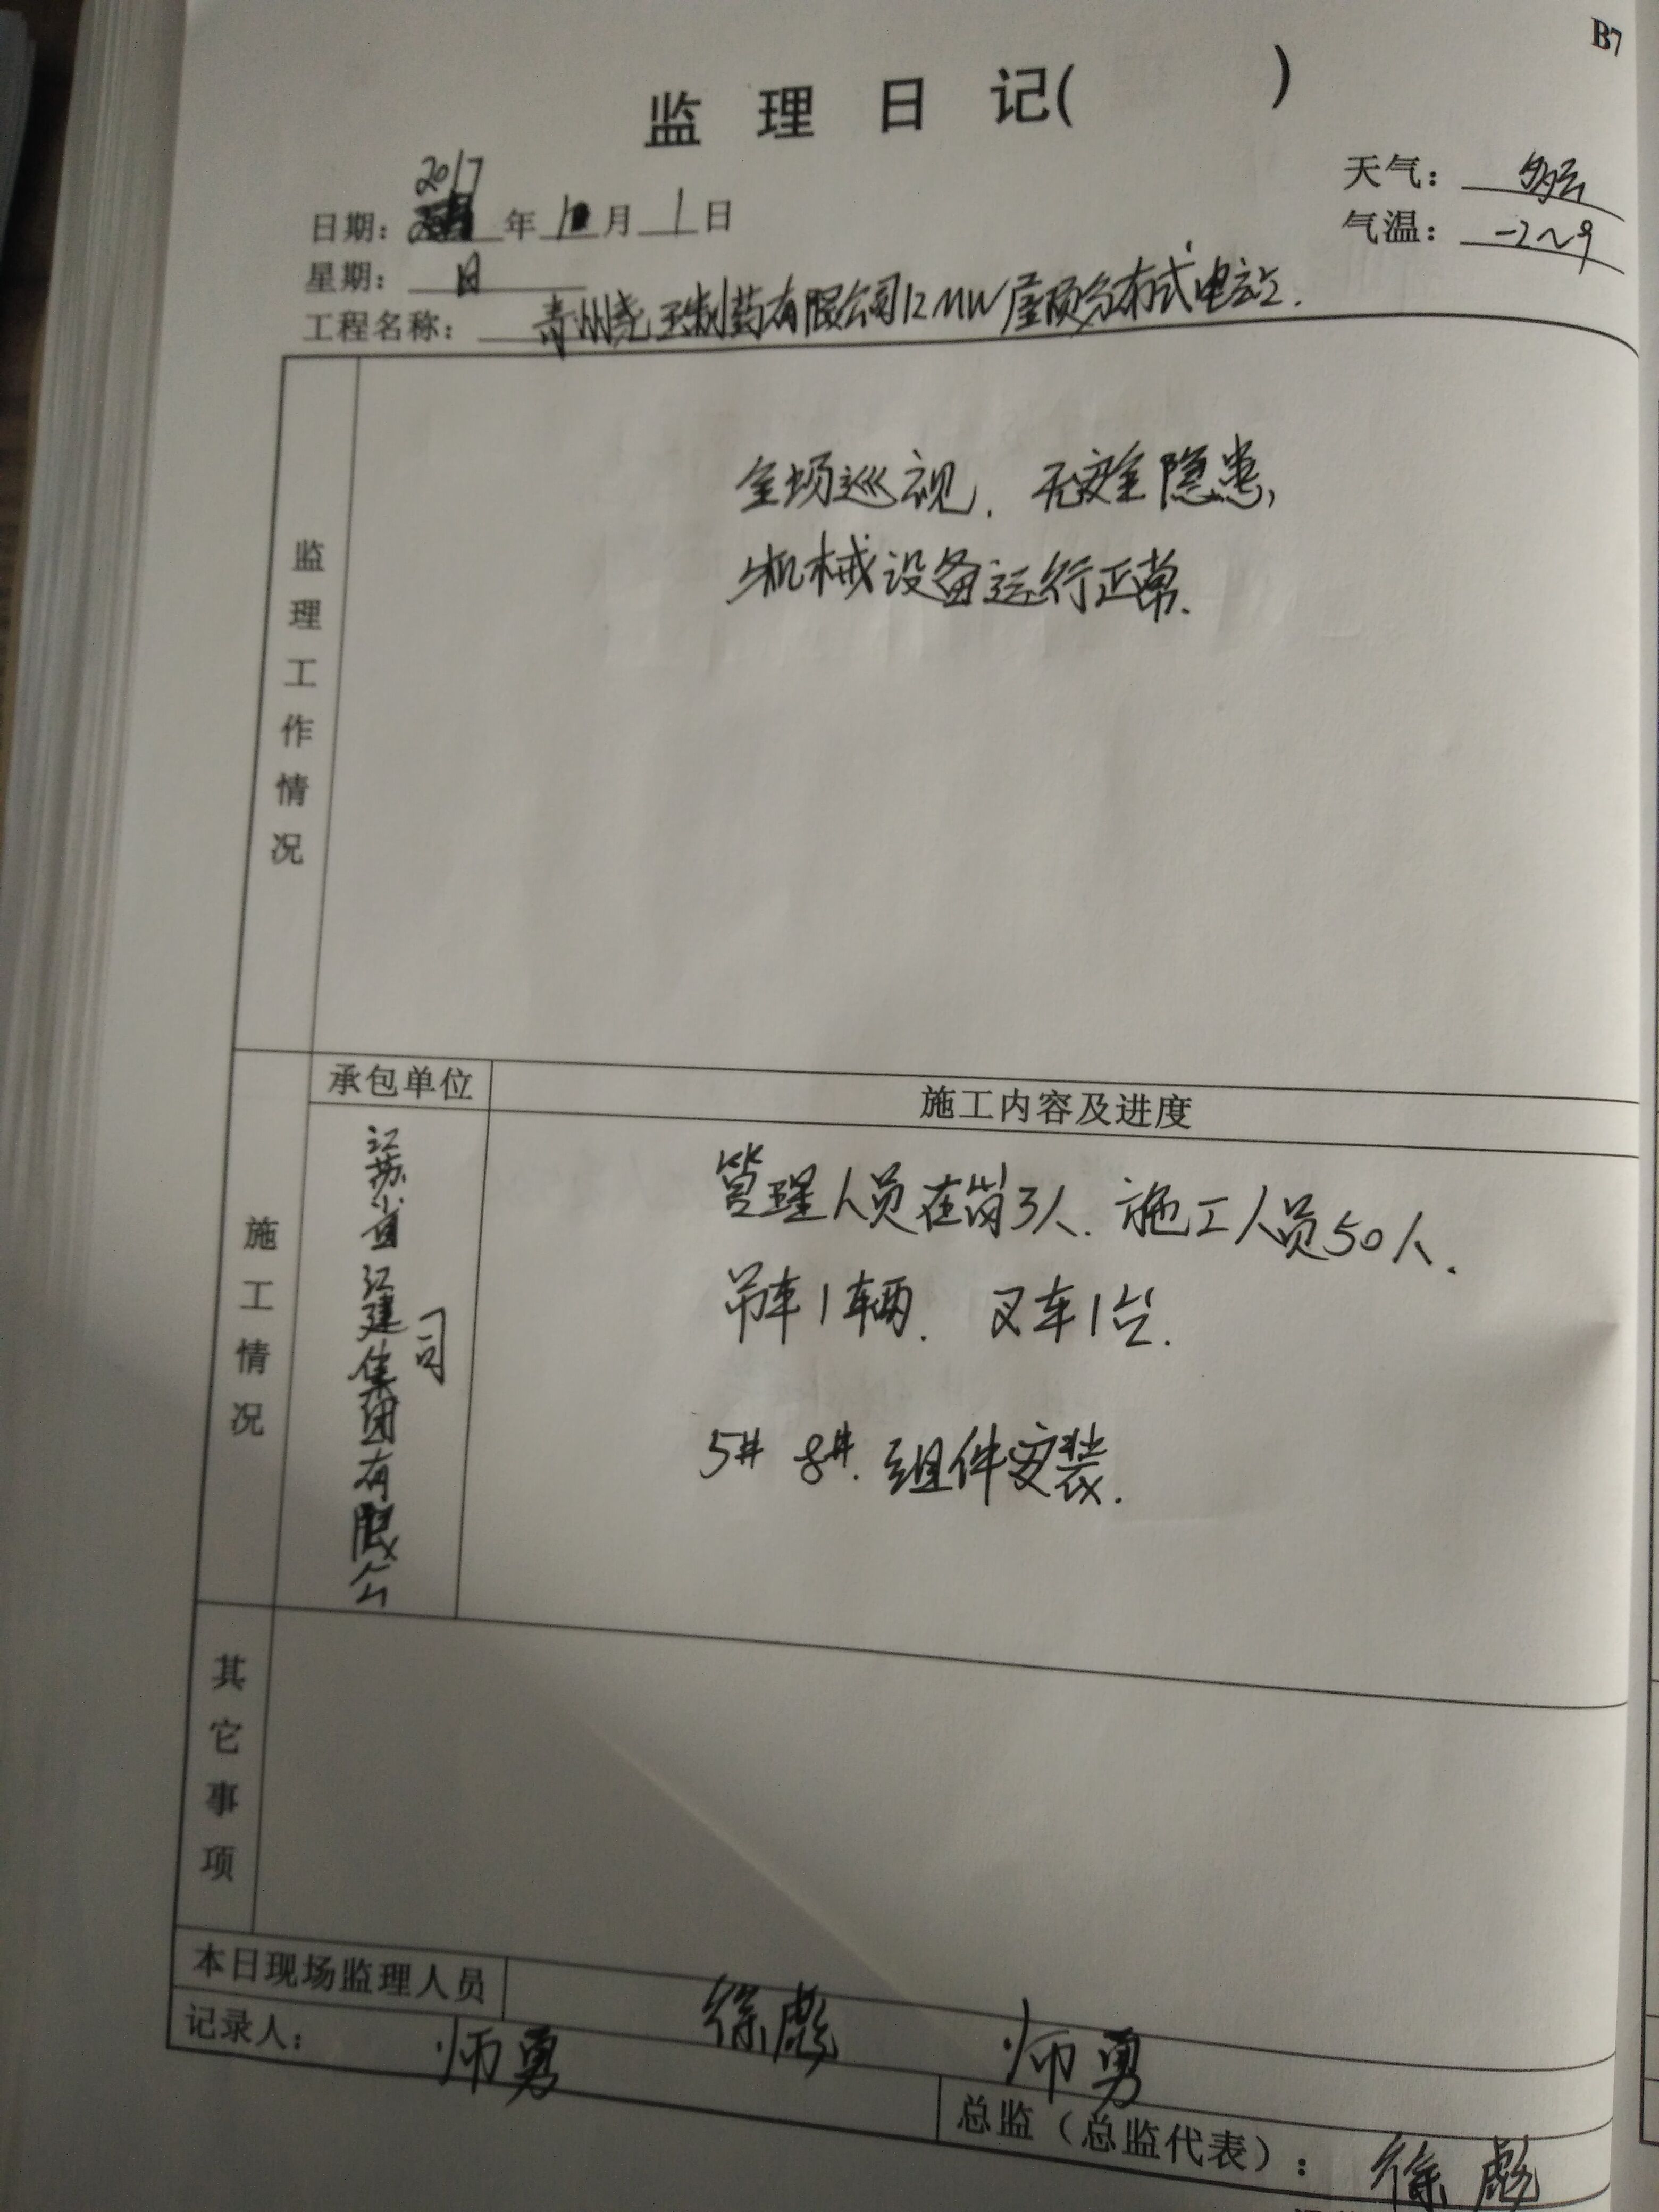 B7
监 理 日 记( )
天气：多云
2017
日期： 年 10 月 1 日
气温：-2~9
星期：日
工程名称：青州尧王制药有限公司12MW屋顶分布式电站.
监理工作情况
全场巡视. 无安全隐患,
机械设备运行正常.
施工情况
承包单位
施工内容及进度
江苏省江建集团有限公司
管理人员在岗3人. 施工人员50人.
吊车1辆. 叉车1台.
5# 8#. 组件安装.
其它事项
本日现场监理人员 徐彪 师勇
记录人： 师勇
总监（总监代表）： 徐彪